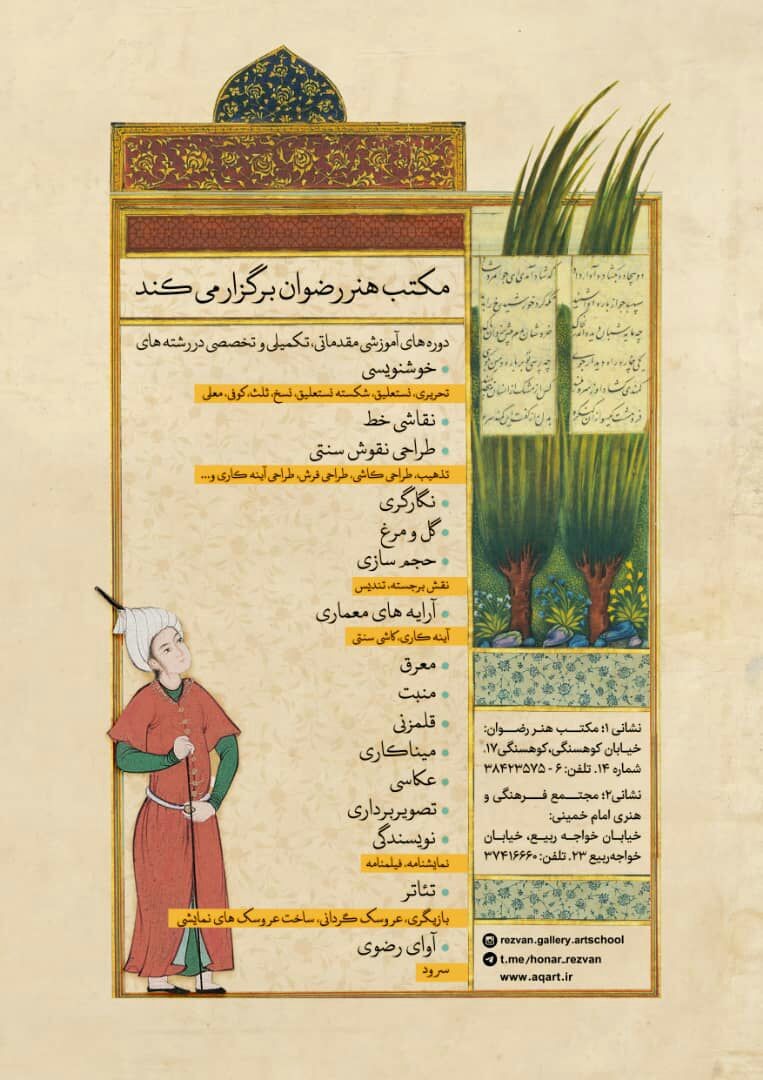 مکتب هنر رضوان برگزار می کند
دوره های آموزشی مقدماتی، تکمیلی و تخصصی در رشته های
• خوشنویسی
تحریری، نستعلیق، شکسته نستعلیق، نسخ، ثلث، کوفی، معلی
• نقاشی خط
• طراحی نقوش سنتی
تذهیب، طراحی کاشی، طراحی فرش، طراحی آینه کاری و...
• نگارگری
• گل و مرغ
• حجم سازی
نقش برجسته، تندیس
• آرایه های معماری
آینه کاری، کاشی سنتی
• معرق
• منبت
• قلمزنی
• میناکاری
• عکاسی
• تصویربرداری
• نویسندگی
نمایشنامه، فیلمنامه
• تئاتر
بازیگری، عروسک گردانی، ساخت عروسک های نمایشی
• آوای رضوی
سرود
نشانی ۱؛ مکتب هنر رضوان:
خیابان کوهسنگی، کوهسنگی ۱۷.
شماره ۱۴. تلفن: ۶ - ۳۸۴۲۳۵۷۵
نشانی ۲؛ مجتمع فرهنگی و
هنری امام خمینی:
خیابان خواجه ربیع، خیابان
خواجه‌ربیع ۲۳. تلفن: ۳۷۴۱۶۶۶۰
rezvan.gallery.artschool
t.me/honar_rezvan
www.aqart.ir